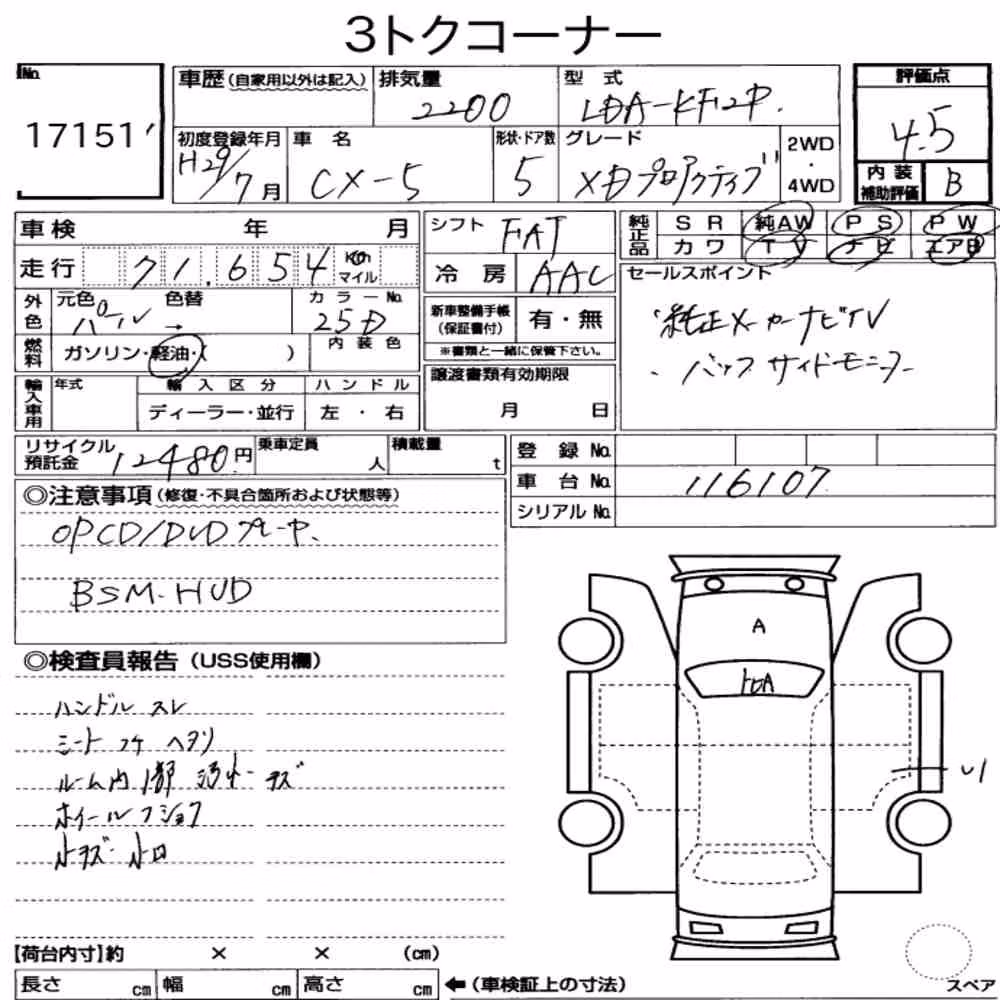 3トクコーナー
No.
17151
車歴 (自家用以外は記入)
排気量
2200
型 式
LDA-KF2P
評価点
4.5
初度登録年月
H29/7月
車 名
CX-5
形状・ドア数
5
グレード
XDプロアクティブ
2WD
・
4WD
内 装
補助評価
B
車検 年 月
シフト
FAT
純正品
SR 純AW PS PW
カワ TV ナビ エアB
走行 71,654 km
マイル
冷 房
AAC
セールスポイント
純正メーカーナビTV
・バック サイドモニター
外色
元色 パール → 色替
カラーNo.
25D
新車整備手帳
(保証書付)
有・無
※書類と一緒に保管下さい。
燃料
ガソリン・軽油・( )
内 装 色
輸入車用
年式
輸 入 区 分
ディーラー・並行
ハ ン ド ル
左 ・ 右
譲渡書類有効期限
月 日
リサイクル
預託金
12480円
乗車定員
人
積載量
t
登 録 No.
車 台 No.
116107
シリアル No.
◎注意事項 (修復・不具合箇所および状態等)
OPCD/DVDプレーヤー
BSM・HUD
◎検査員報告 (USS使用欄)
ハンドル スレ
シート コケ ヘタリ
ルーム内 1部 汚れ キズ
ホイール フショク
小キズ 小凹
A
U1
【荷台内寸】約 × × (cm)
長さ cm 幅 cm 高さ cm ←(車検証上の寸法)
スペア